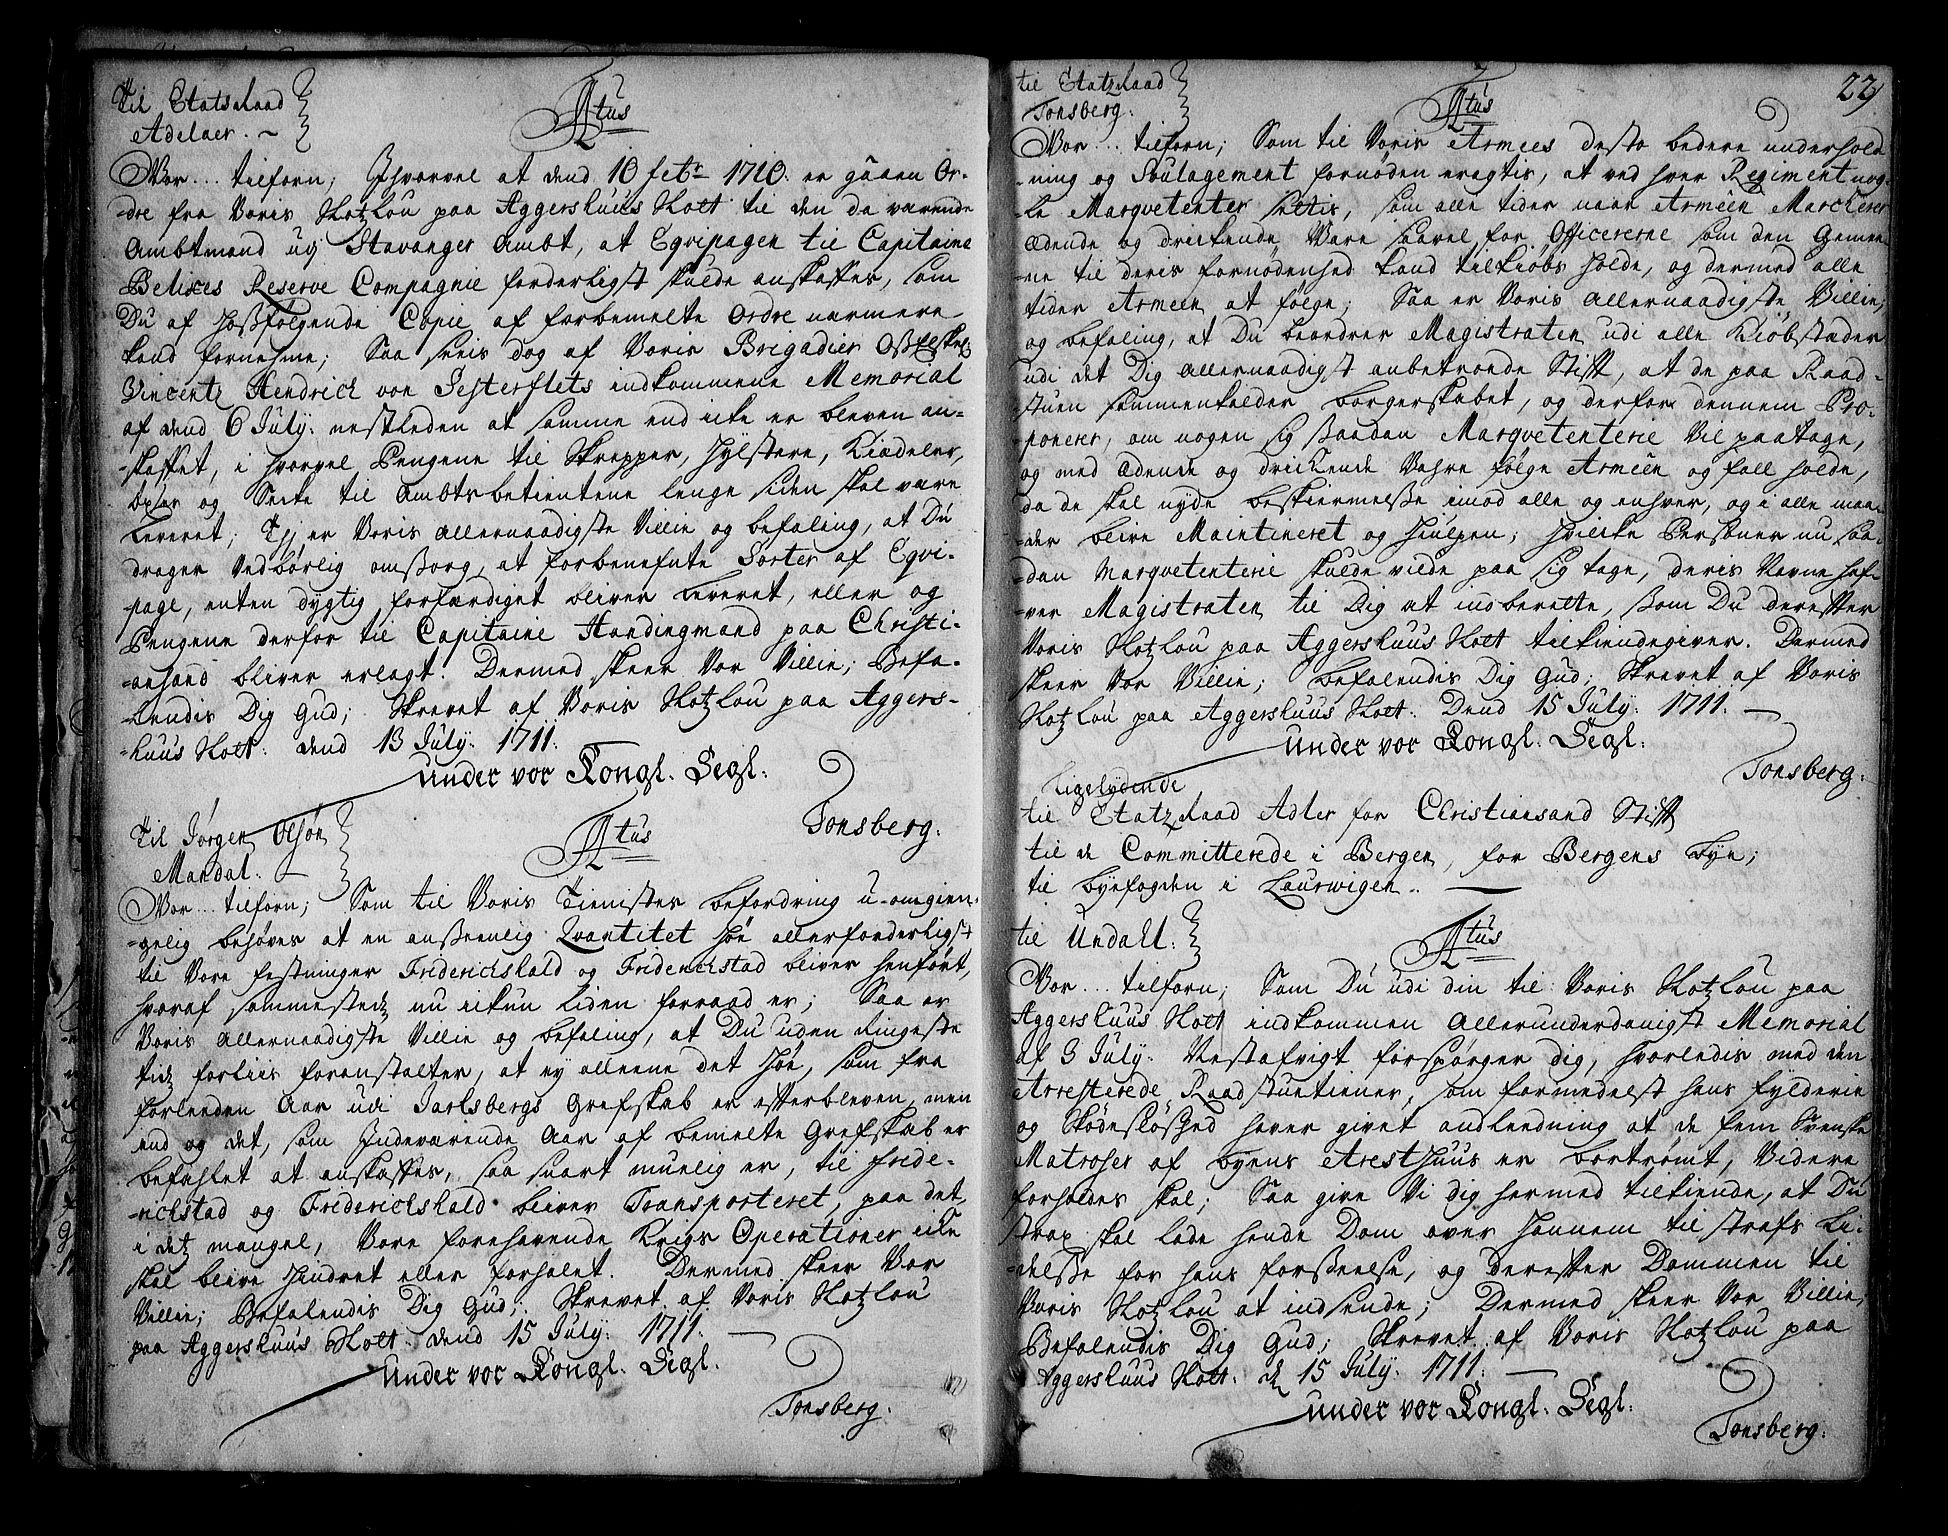 Til Etatsraad
Adelaer. ~
Atus
Vor... tilforn; Ihvorvel at dend 10 febr 1710. er gaaen Or-
-dre fra Voris Slotzlou paa Aggershuus Slott til den da værende
Ambtmand udj Stavanger Ambt, at Eqvipagen til Capitaine
Reserve Compagnie forderligst skulde anskaffes, som
Du af hoßfølgende Copie af forbemelte Ordre nærmere
kand fornehme; Saa sees dog af Voris Brigadier
Vincentz Hendrich von indkommene Memorial
af dend 6 July: nestleden at samme end icke er bleven an-
-skaffet, i hvorvel Pengene til Skrapper, Hylstere, Kiædeler,
og Secke til Ambtsbetientene lenge siden skal være
Leveret; Thj er Voris allernaadigste Villie og befaling, at Du
drager Vedbørlig omßorg, at forbenefnte Sorter af Eqvi-
-page, enten dygtig forfærdiget bliver Leveret, eller og
Pengene derfor til Capitaine Handingmand paa Christi-
-ansand bliver erlagt. Dermed skeer Vor Villie; Befa-
-lendis Dig Gud; Skrevet af Voris Slotzlou paa Aggers-
-huus Slott: dend 13 July: 1711.
under vor Kongl. Segl:
Tonsberg:
Til Jørgen Olsøn
Mandal. —
Atus
Vor... tilforn; Som til Voris Tienistes befordring u-omgien-
-gelig behøves at en anßeenlig Qvantitet Høe allerforderligst
til Vore festninger Friderichshald og Friderichstad bliver henført,
hvoraf sammestedz nu ickun liden forraad er; Saa er
Voris Allernaadigste Villie og befaling, at Du uden ringeste
tidz forliis foranstalter, at ey alleene det Høe, som fra
forleeden Aar udi Jarlsbergs Grefskab er efterbleven, men
end og det, som Indeværende Aar af bemelte Grefskab er
befahlet at anskaffes, saa snart muelig er, til Frede-
-richstad og Friderichshald bliver Transporteret, paa det,
i detz mangel, Vore forehavende Krigs Operationer icke
skal blive Hindret eller forhalet. Dermed skeer Vor
Villie; Befalendis Dig Gud; Skrevet af Voris Slotzlou
paa Aggershuus Slott: dend 15 July: 1711. —
under vor Kongl. Segl.
Tonsberg:
22
til Etatzraad
Tonsberg:
Atus
Vor... tilforn; Som til Voris Armees desto bedere underhold-
-ning og Soulagement fornøden eragtis, at ved hver Regiment nog-
-le Marqvetenter settis, som alle tider naar Armeen Marcherer
ædende og drickende Vare saavel for Officererne som den Gemee-
-ne til deris fornødenhed kand tilkiøbs holde, og dermed alle
tider Armeen at følge; Saa er Voris allernaadigste Villie,
og befaling, at Du beordrer Magistraten udi alle Kiøbstæder
udi det Dig allernaadigst anbetroede Stift, at de paa Raad-
-stuen sammenkalder borgerskabet, og derfor dennem Pro-
-ponerer, om nogen sig ßaadan Marqvetenterie vil paatage,
og med ædende og drickende Vahre følge Armeen og fall holde,
da de skal nyde beskiermelße imod alle og enhver, og i alle maa-
-der blive Maintineret og hiulpen; Hvilcke Personer nu saa-
-dan Marqvetenterie skulde vilde paa sig tage, deris Navne haf-
-ver Magistraten til Dig at indberette, ßom Du derefter
Voris Slotzlou paa Aggershuus Slott tilkiendegiver. Dermed
skeer Vor Villie; befalendis Dig Gud; Skrevet af Voris
Slotzlou paa Aggershuus Slott: Dend 15 July: 1711. —
under vor Kongl. Segl:
Tonsberg:
Ligelydende
til Etatzraad Adler for Christiansand Stift
til de Committerede i Bergen, for Bergens
til byefogden i Laurwigen.. —
til Undall:
Atus
Vor... tilforn; Som Du udi din til Voris Slotzlou paa
Aggershuus Slott indkommen Allerunderdanigst Memorial
af 3 July: forspørger dig, hvorledis med den
Arresterede Raadstuetiener, som formedelst hans fylderie
og Skødesløshed haver givet andleedning at de fem Svenske
Matroser af byens Aresthuus er bortrømt, Videre
forholdes skal; Saa give Vi dig hermed tilkiende, at Du
strax skal lade hende Dom over hannem til straffs Li-
-delße for hans forßeelse, og derefter Dommen til
Voris Slotzlou at indsende; Dermed skeer Vor Villie,
Befalendis Dig Gud; Skrevet af Voris Slotzlou paa
Aggershuus Slott: d 15 July: 1711. —
under vor Kongl. Segl.
Tonsberg: